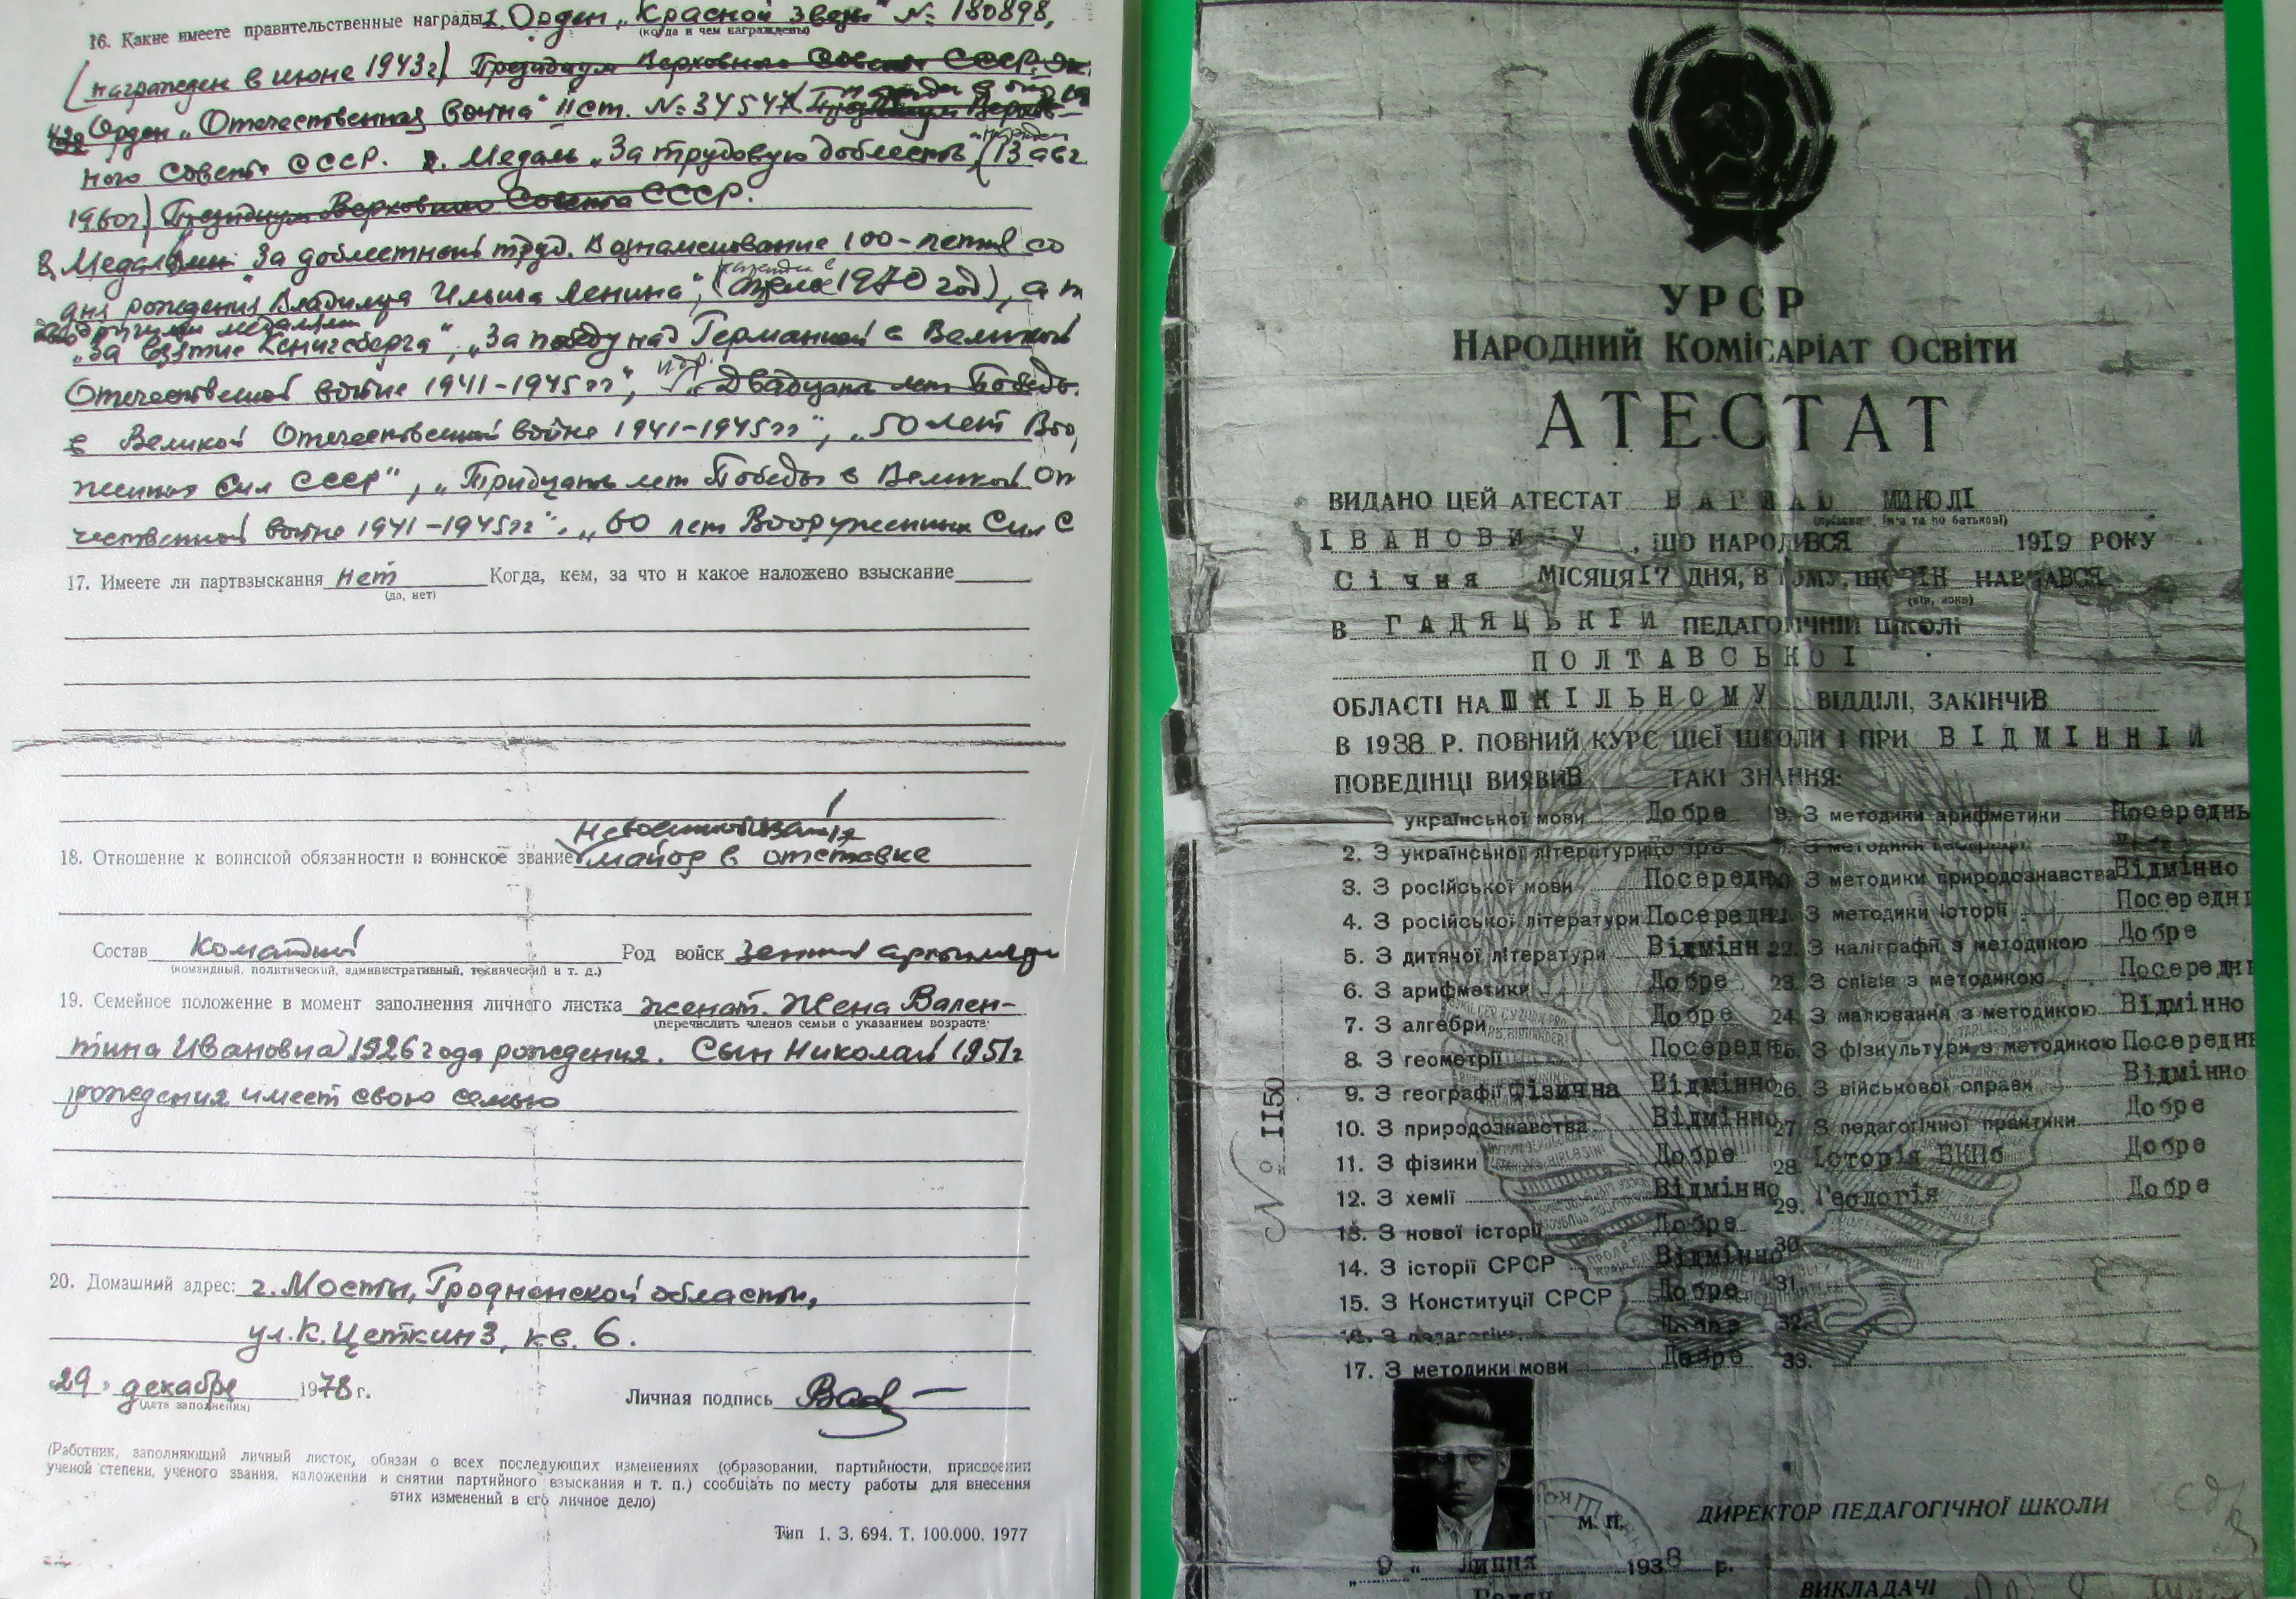 16. Какие имеете правительственные награды 1. Орден „Красной Звезды" № 180898,
(когда и чем награждены)
(награжден в июне 1943г) Президиум Верховного Совета СССР.
Орден „Отечественная война" II ст. № 34547
ного Совета СССР. Медаль „За трудовую доблесть" (13 авг.
1960г) Президиум Верховного Совета СССР.
За доблестный труд. В ознаменование 100-летия со
дня рождения Владимира Ильича Ленина", 1970 год), а т
другими медалями
„За взятие Кенигсберга", „За победу над Германией в Великой
Отечественной войне 1941-1945гг", „Двадцать лет Победы
в Великой Отечественной войне 1941-1945гг", „50 лет Воо
женных Сил СССР", „Тридцать лет Победы в Великой От
чественной войне 1941-1945гг". „60 лет Вооруженных Сил С
17. Имеете ли партвзыскания нет Когда, кем, за что и какое наложено взыскание
(да, нет)
18. Отношение к воинской обязанности и воинское звание майор в отставке
Состав Командный Род войск
(командный, политический, административный, технический и т. д.)
19. Семейное положение в момент заполнения личного листка женат. Жена Вален-
(перечислить членов семьи с указанием возраста)
тина Ивановна 1926 года рождения. Сын Николай 1951г
рождения имеет свою семью
20. Домашний адрес: г. Мосты, Гродненской области,
ул. К. Цеткин 3, кв. 6.
„29" декабря 1978 г. Личная подпись
(дата заполнения)
(Работник, заполняющий личный листок, обязан о всех последующих изменениях (образовании, партийности, присвоении
ученой степени, ученого звания, наложении и снятии партийного взыскания и т. п.) сообщать по месту работы для внесения
этих изменений в его личное дело)
Тип 1. З. 694. Т. 100.000. 1977
УРСР
Народний Комісаріат Освіти
АТЕСТАТ
ВИДАНО ЦЕЙ АТЕСТАТ МИКОЛІ
(прізвище, ім'я та по батькові)
ІВАНОВИЧУ, ЩО НАРОДИВСЯ 1919 РОКУ
Січня МІСЯЦЯ 17 ДНЯ, В ТОМУ, ЩО ВІН НАВЧАВСЯ
(він, вона)
В ГАДЯЦЬКІЙ ПЕДАГОГІЧНІЙ ШКОЛІ
ПОЛТАВСЬКОІ
ОБЛАСТІ НА ШКІЛЬНОМУ ВІДДІЛІ, ЗАКІНЧИВ
В 1938 Р. ПОВНИЙ КУРС ЦІЄЇ ШКОЛИ І ПРИ ВІДМІННІЙ
ПОВЕДІНЦІ ВИЯВИВ ТАКІ ЗНАННЯ:
української мови Добре
2. З української літератури Добре
3. З російської мови Посередньо
4. З російської літератури Посередн
5. З дитячої літератури Відмінн
6. З арифметики Добре
7. З алгебри Добре
8. З геометрії Посередн
9. З географії Фізична Відмінно
10. З природознавства Відмінно
11. З фізики Добре
12. З хемії Відмінно
13. З нової історії Добре
14. З історії СРСР Відмінно
15. З Конституції СРСР Добре
16. З педагогіки Добре
17. З методики мови Добре
З методики арифметики Посереднь
З методики природознавства Відмінно
21. З методики історії Посередн
22. З каліграфії з методикою Добре
23. З співів з методикою Посередн
24. З малювання з методикою Відмінно
25. З фізкультури з методикою Посереднь
26. З військової справи Відмінно
27. З педагогічної практики Добре
28. Історія ВКПб Добре
29. Геологія Добре
30.
31.
32.
33.
№ ІІ50
М. П.
ДИРЕКТОР ПЕДАГОГІЧНОЇ ШКОЛИ
„ 9 " Липня 1938 р.
ВИКЛАДАЧІ